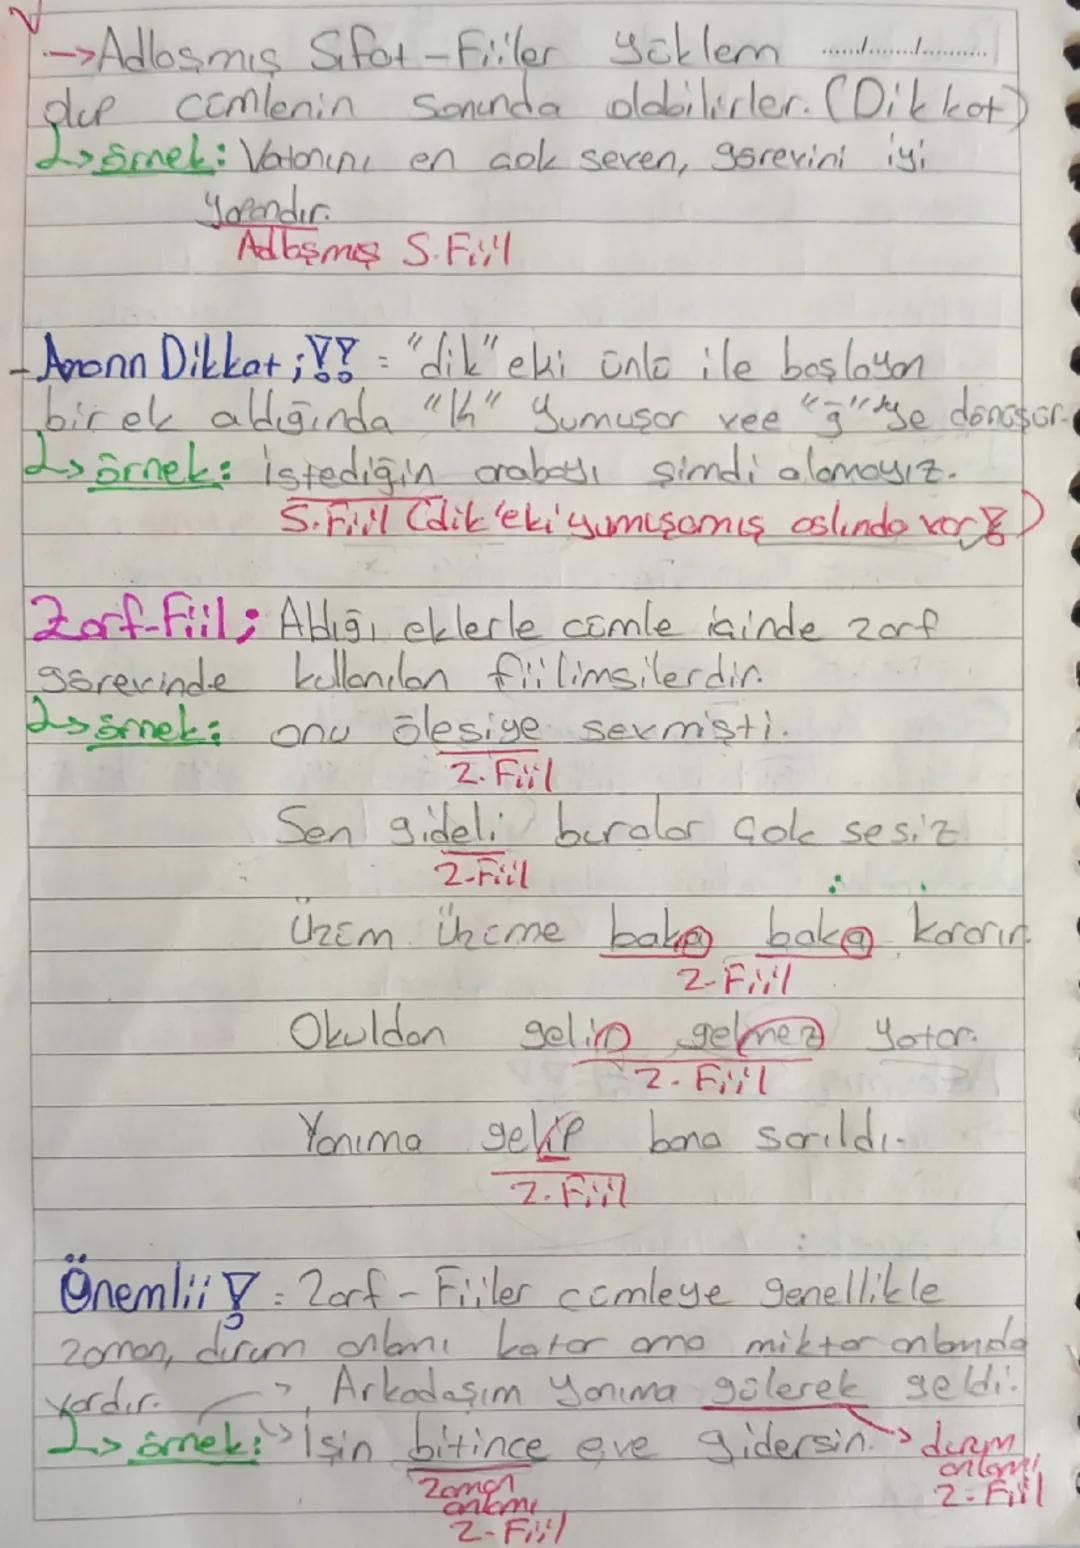 →Adlaşmış Sıfat-Fiiler Yüklem ....../....../......
olup cümlenin sonunda olabilirler. (Dikkat)
↳örnek: Vatanını en çok seven, görevini iyi
yapandır.
Adlaşmış S.Fiil
-Amonn Dikkat;!! = "dik" eki ünlü ile başlayan
bir ek aldığında "k" yumuşar vee "ğ" ye dönüşür.
↳örnek: istediğin arabayı şimdi alamayız.
S.Fiil (dik'eki'yumuşamış aslında var!)
Zarf-Fiil; Aldığı eklerle cümle içinde zarf
görevinde kullanılan fiilimsilerdir.
↳örnek: onu ölesiye sevmişti.
Z.Fiil
Sen gideli buralar çok sesiz
Z-Fiil
Üzüm üzüme baka baka kararır.
Z-Fiil
Okuldan gelir gelmez yatar.
Z.Fiil
Yanıma gelip bana sarıldı.
Z.Fiil
Önemlii! = Zarf-Fiiler cümleye genellikle
zaman, durum anlamı katar ama miktar anlamıda
vardır. → Arkadaşım yanıma gülerek geldi.
↳örnek: → İşin bitince eve gidersin. → durum
anlamı
zaman
anlamı
Z-Fiil
Z-Fiil